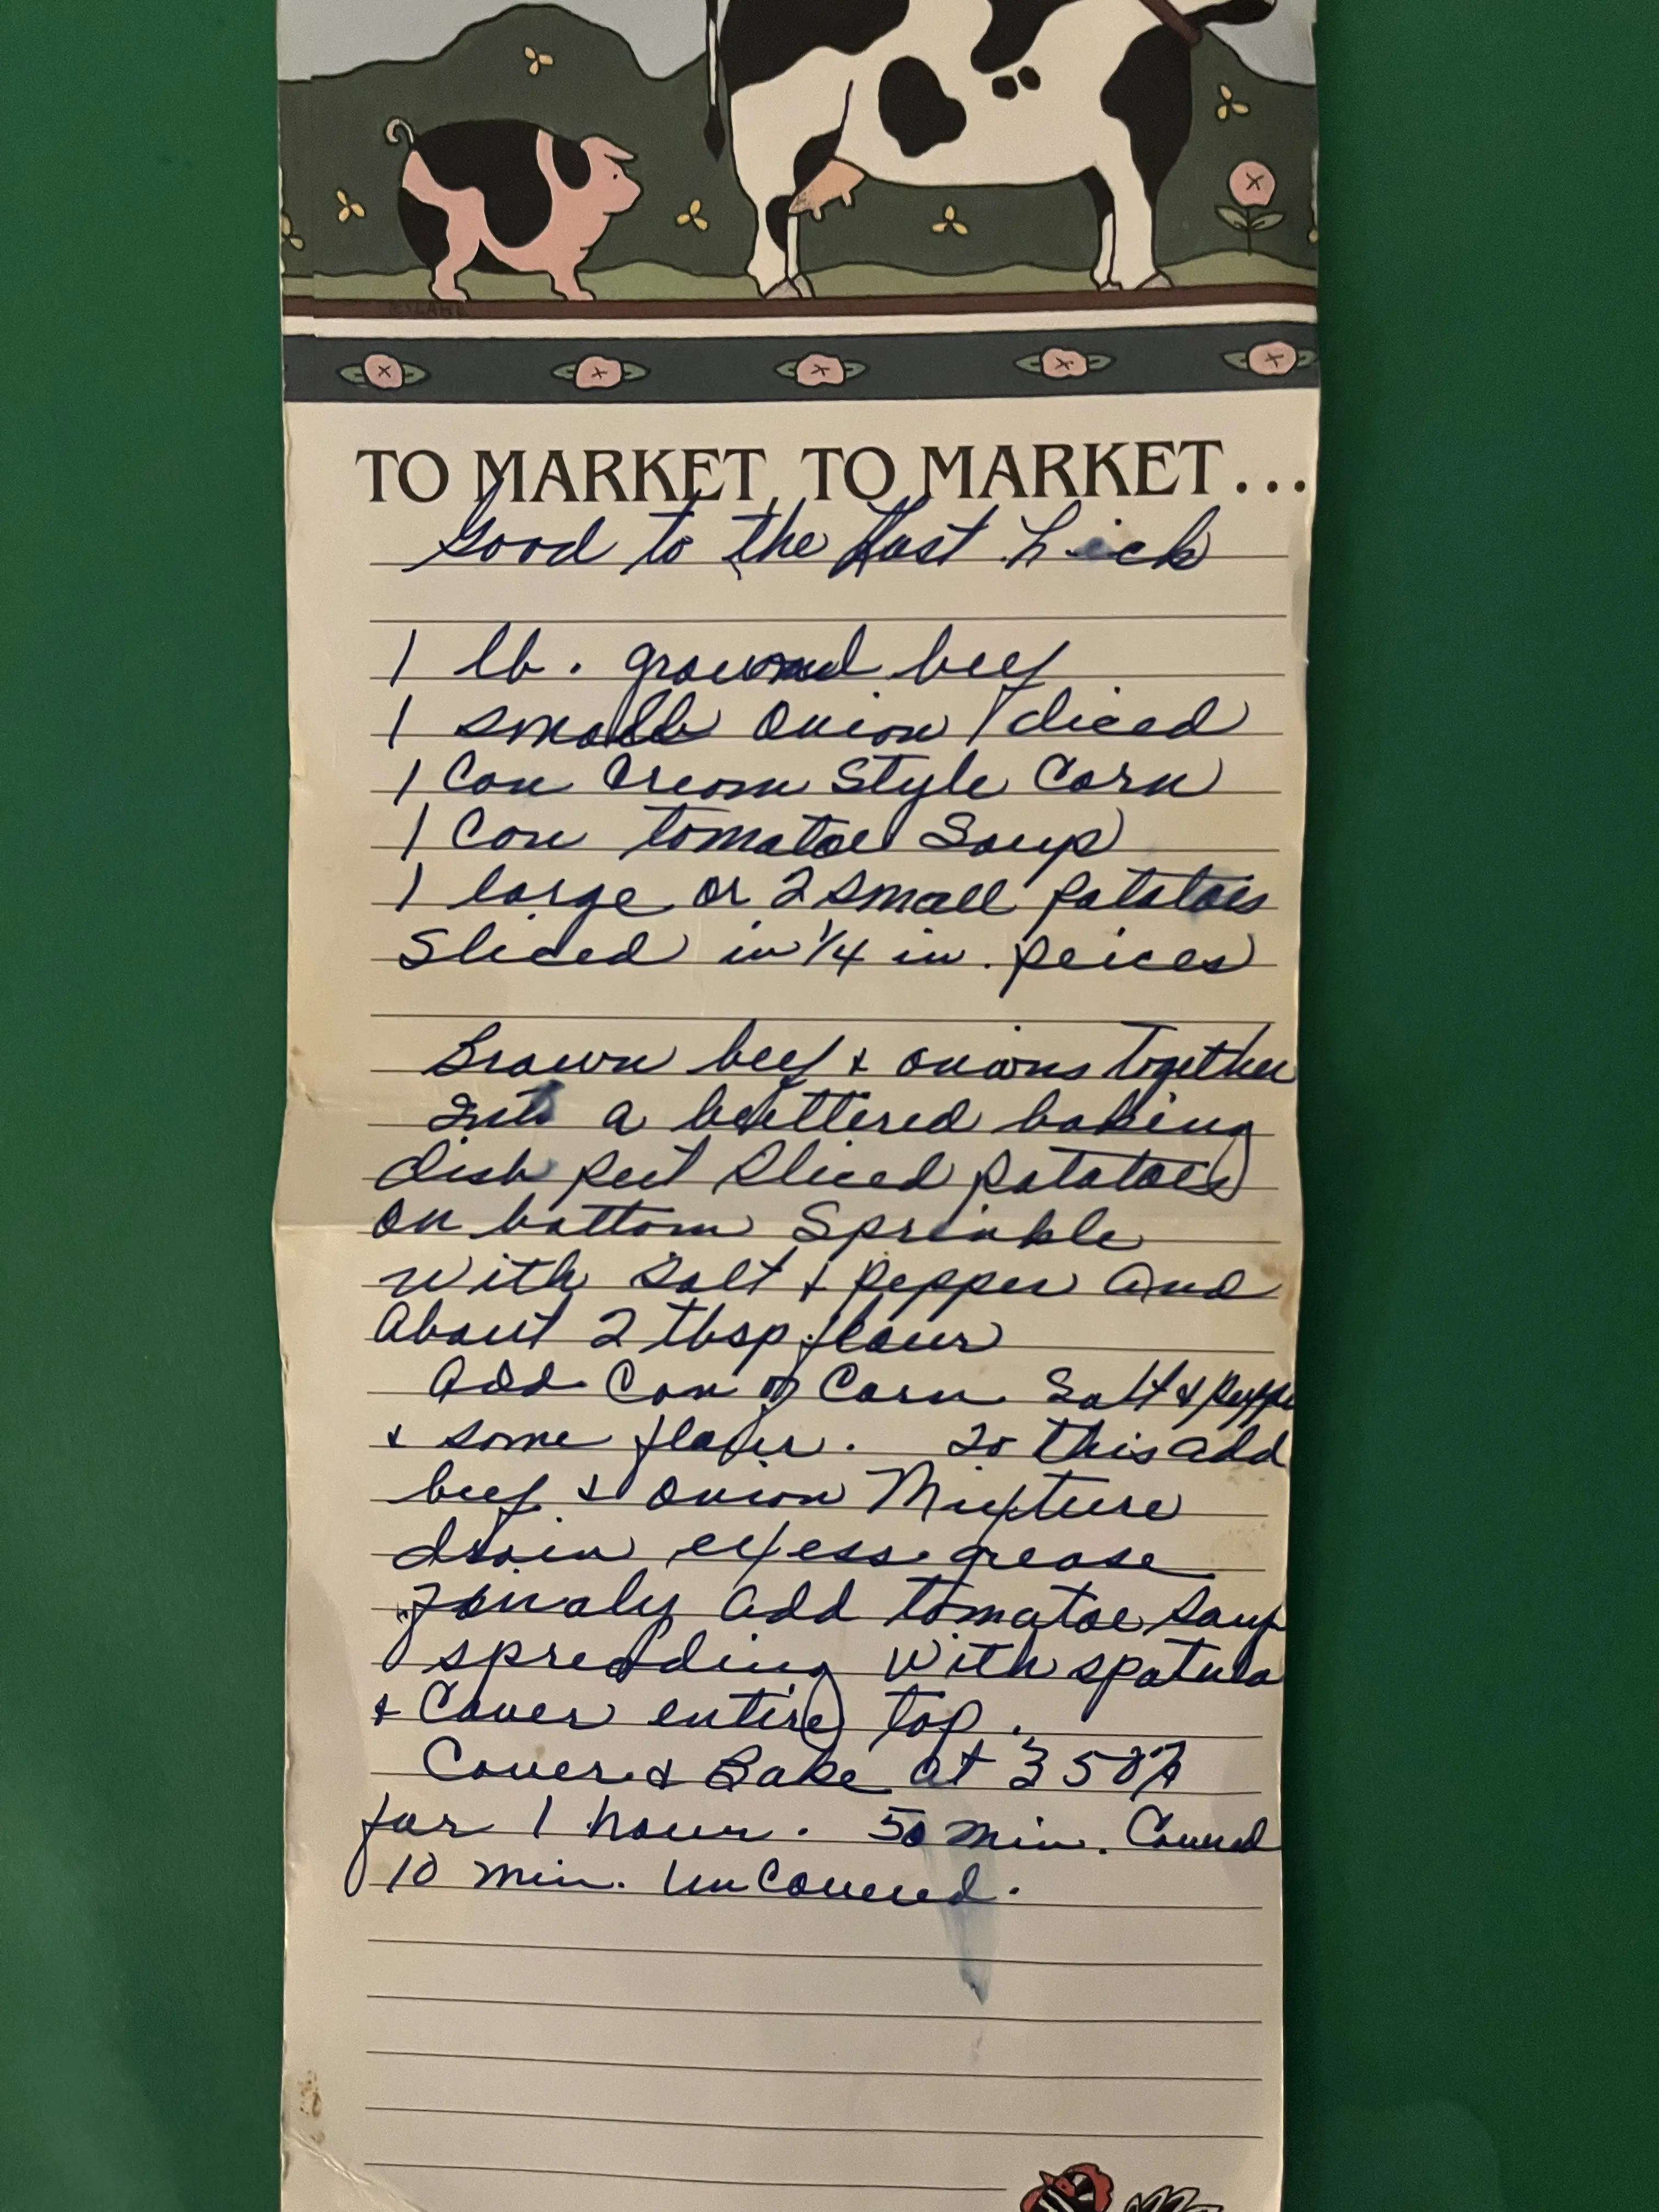 TO MARKET, TO MARKET...
Good to the Last Lick
1 lb. ground beef
1 small onion / diced
1 Can Cream Style Corn
1 Can tomatoe Soup
1 large or 2 small potatoes
Sliced in 1/4 in. peices
Brown beef & onions together
Into a buttered baking
dish put sliced potatoes
on bottom Sprinkle
with salt & pepper and
About 2 tbsp flour
Add Can of Corn Salt & Peppe
& some flour. To this add
beef & onion Mixture
drain exfess grease
Finaly add tomatoe soup
spreading with spatula
& Cover entire top.
Cover & Bake at 350°
for 1 hour. 50 min. Covered
10 min. UnCovered.